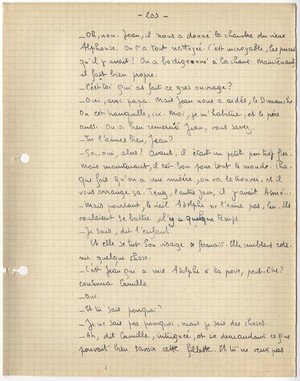 - 203 -
_Oh, non. Jean, il nous a donné la chambre du vieux
Alphonse. On a tout nettoyé. C'est incroyable, les puces
qu'il y avait! On a badigeonné à la chaux. Maintenant,
il fait bien propre.
_C'est toi qui as fait ce gros ouvrage?
_Oui, avec papa. Mais Jean nous a aidés, le Dimanche.
On est tranquille, ici. Moi, je m'habitue, et le père
aussi. On a bien remercié Jean, vous savez.
_Tu l'aimes bien, Jean?
_Ça, oui, alors! Avant, il était un petit peu fier.
Mais maintenant, il est bon pour tout le monde. Cha-
que fois qu'on a une misère, on va le trouver, et il
vous arrange ça. Tenez, l'autre jour, il y avait Aimé
_Mais pourtant, le vieil Adolphe ne l'aime pas, lui. Ils
voulaient se battre il y a quelque temps.
_Je sais, dit l'enfant.
Et elle se tut. Son visage se fermait. Elle semblait rete-
nir quelque chose.
_C'est Jean qui a mis Adolphe à la porte, peut-être?
continua Camille.
_Oui.
_Et tu sais pourquoi?
_Je ne sais pas pourquoi, mais je sais des choses.
_Ah, dit Camille, intriguée, et se demandant ce que
pouvait bien savoir cette fillette. Et tu ne veux pas